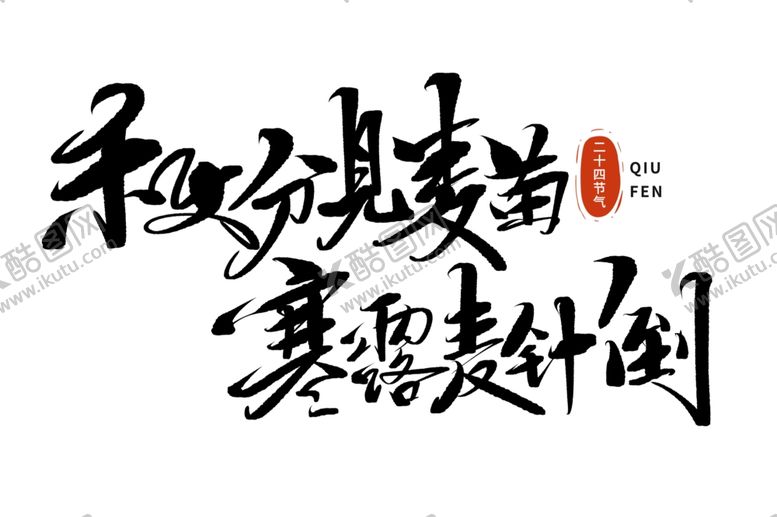 秋分见麦苗
二十四节气
QIU
FEN
寒露麦针倒
酷图网
www.ikutu.com